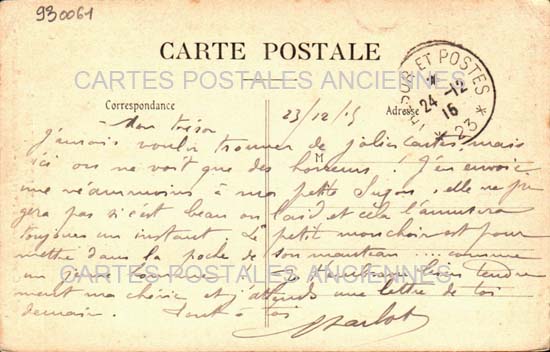 930061
CARTE POSTALE
CARTES POSTALES ANCIENNES
TRÉSOR ET POSTES
24 -12
15
* 23 *
Correspondance
Adresse
23/12/15
Mon trésor
j'aurais voulu trouver de jolies cartes, mais
ici on ne voit que des horreurs! J'en envoie
une néanmoins à ma petite Suzon, elle ne ju
gera pas si c'est beau ou laid, et cela l'amusera
toujours un instant. Le petit mouchoir est pour
mettre dans la poche de son manteau .... comme
un
CARTES POSTALES ANCIENNES
bien tendre
ment ma chérie et j'attends une lettre de toi
demain. Tout à toi
Charlot